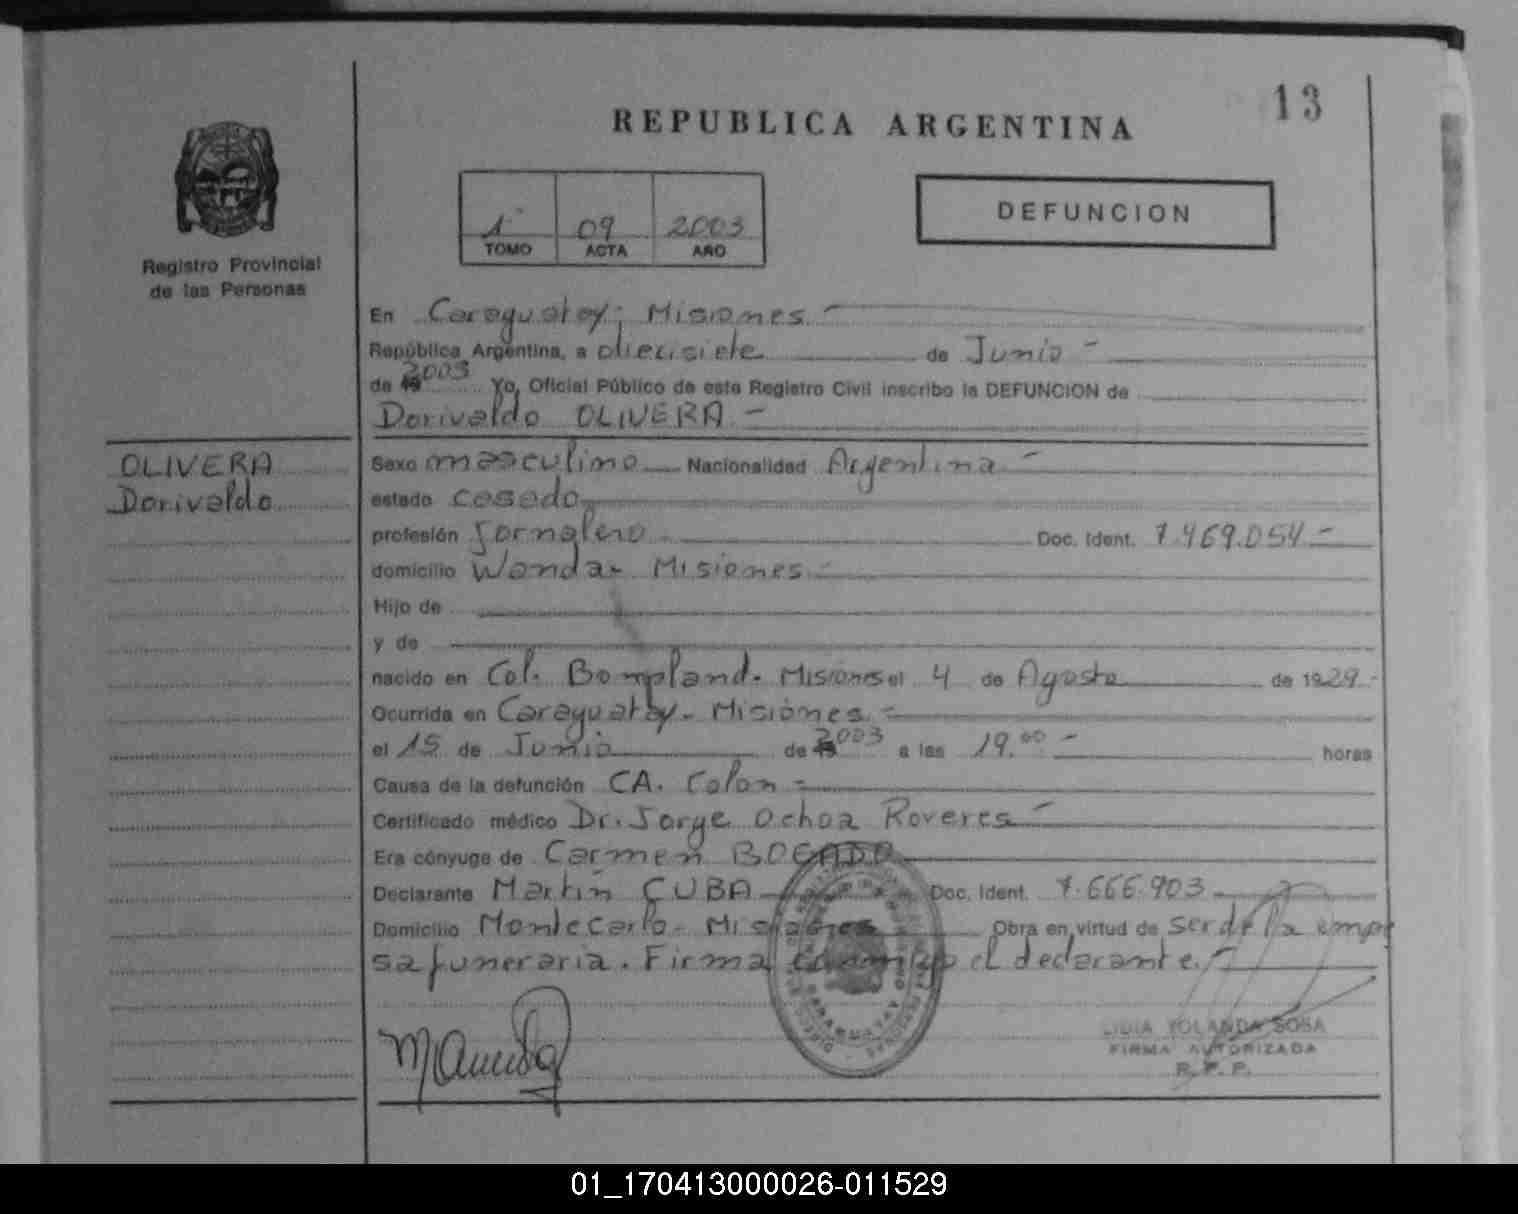 13
REPUBLICA ARGENTINA
1° 09 2003
TOMO ACTA AÑO
DEFUNCION
Registro Provincial
de las Personas
En Caraguatay, Misiones.-
República Argentina, a diecisiete de Junio -
de 19 2003 Yo, Oficial Público de este Registro Civil inscribo la DEFUNCION de
Dorivaldo OLIVERA.-
OLIVERA
Dorivaldo
Sexo masculino Nacionalidad Argentina -
estado casado
profesión Jornalero Doc. Ident. 7.469.054.-
domicilio Wanda- Misiones.-
Hijo de
y de
nacido en Col. Bompland. Misiones el 4 de Agosto de 1929.-
Ocurrida en Caraguatay- Misiones.-
el 15 de Junio de 19 2003 a las 19.00 - horas
Causa de la defunción CA. Colon -
Certificado médico Dr. Jorge Ochoa Roveres -
Era cónyuge de Carmen BOGADO
Declarante Martin CUBA Doc. Ident. 7.666.903
Domicilio Montecarlo- Misiones Obra en virtud de ser de la empre
sa funeraria. Firma conmigo el declarante.-
LIDIA YOLANDA SOSA
FIRMA AUTORIZADA
R. P. P.
01_170413000026-011529